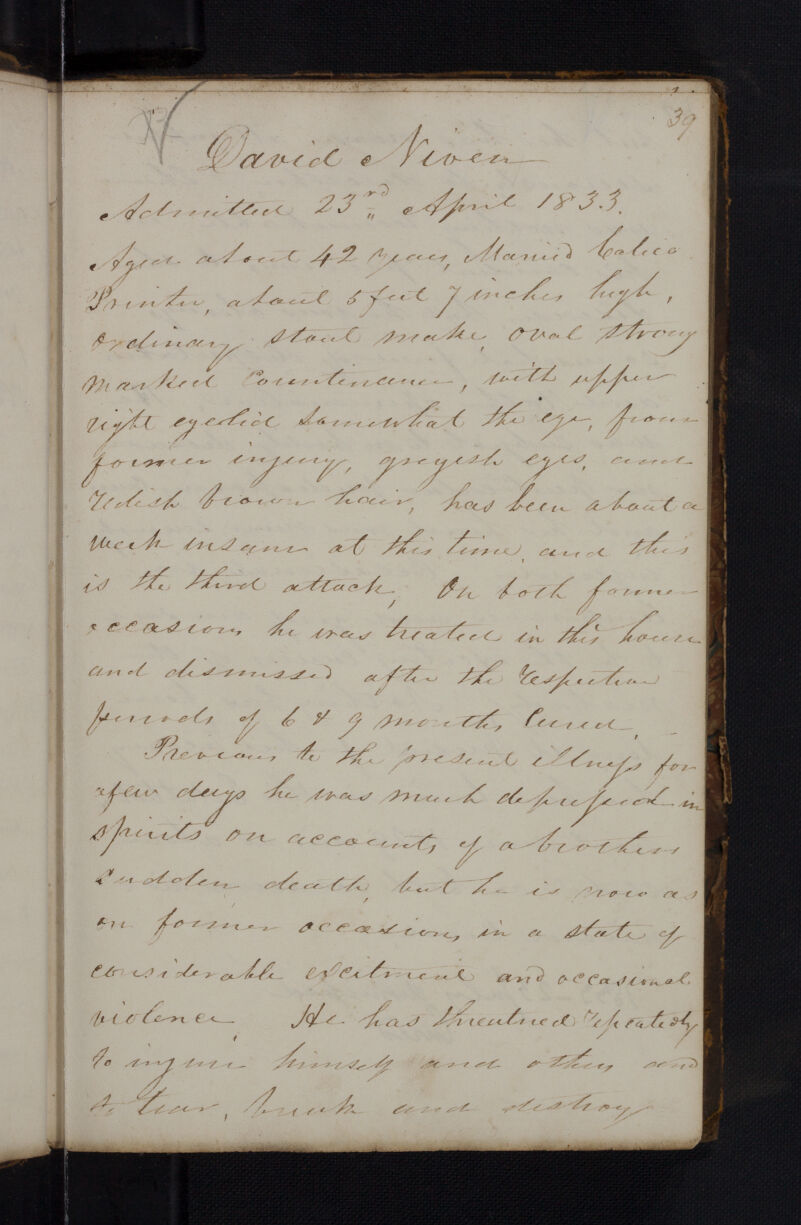 39
David Niven
Admitted 23rd April 1833.
Aged about 42 years, Married Calico
Printer, about 5 feet 7 inches high,
ordinary stout make, oval strong
marked Countenance, with upper
right eyelid somewhat the eye, from
former injury, greyish eyes, and
redish brown hair, has been about a
week insane at this time, and this
is the third attack, On both former
occasions he was treated in this house
and dismissed after the respective
periods of 6 & 9 months Cured.
Previous to the present illness for
a few days he was much depressed in
spirits on account of a brothers
sudden death, but he is now as
on former occasions in a state of
considerable excitment and occasional
violence, He has threatned repeatedly
to injure himself and others and
to tear, break and destroy